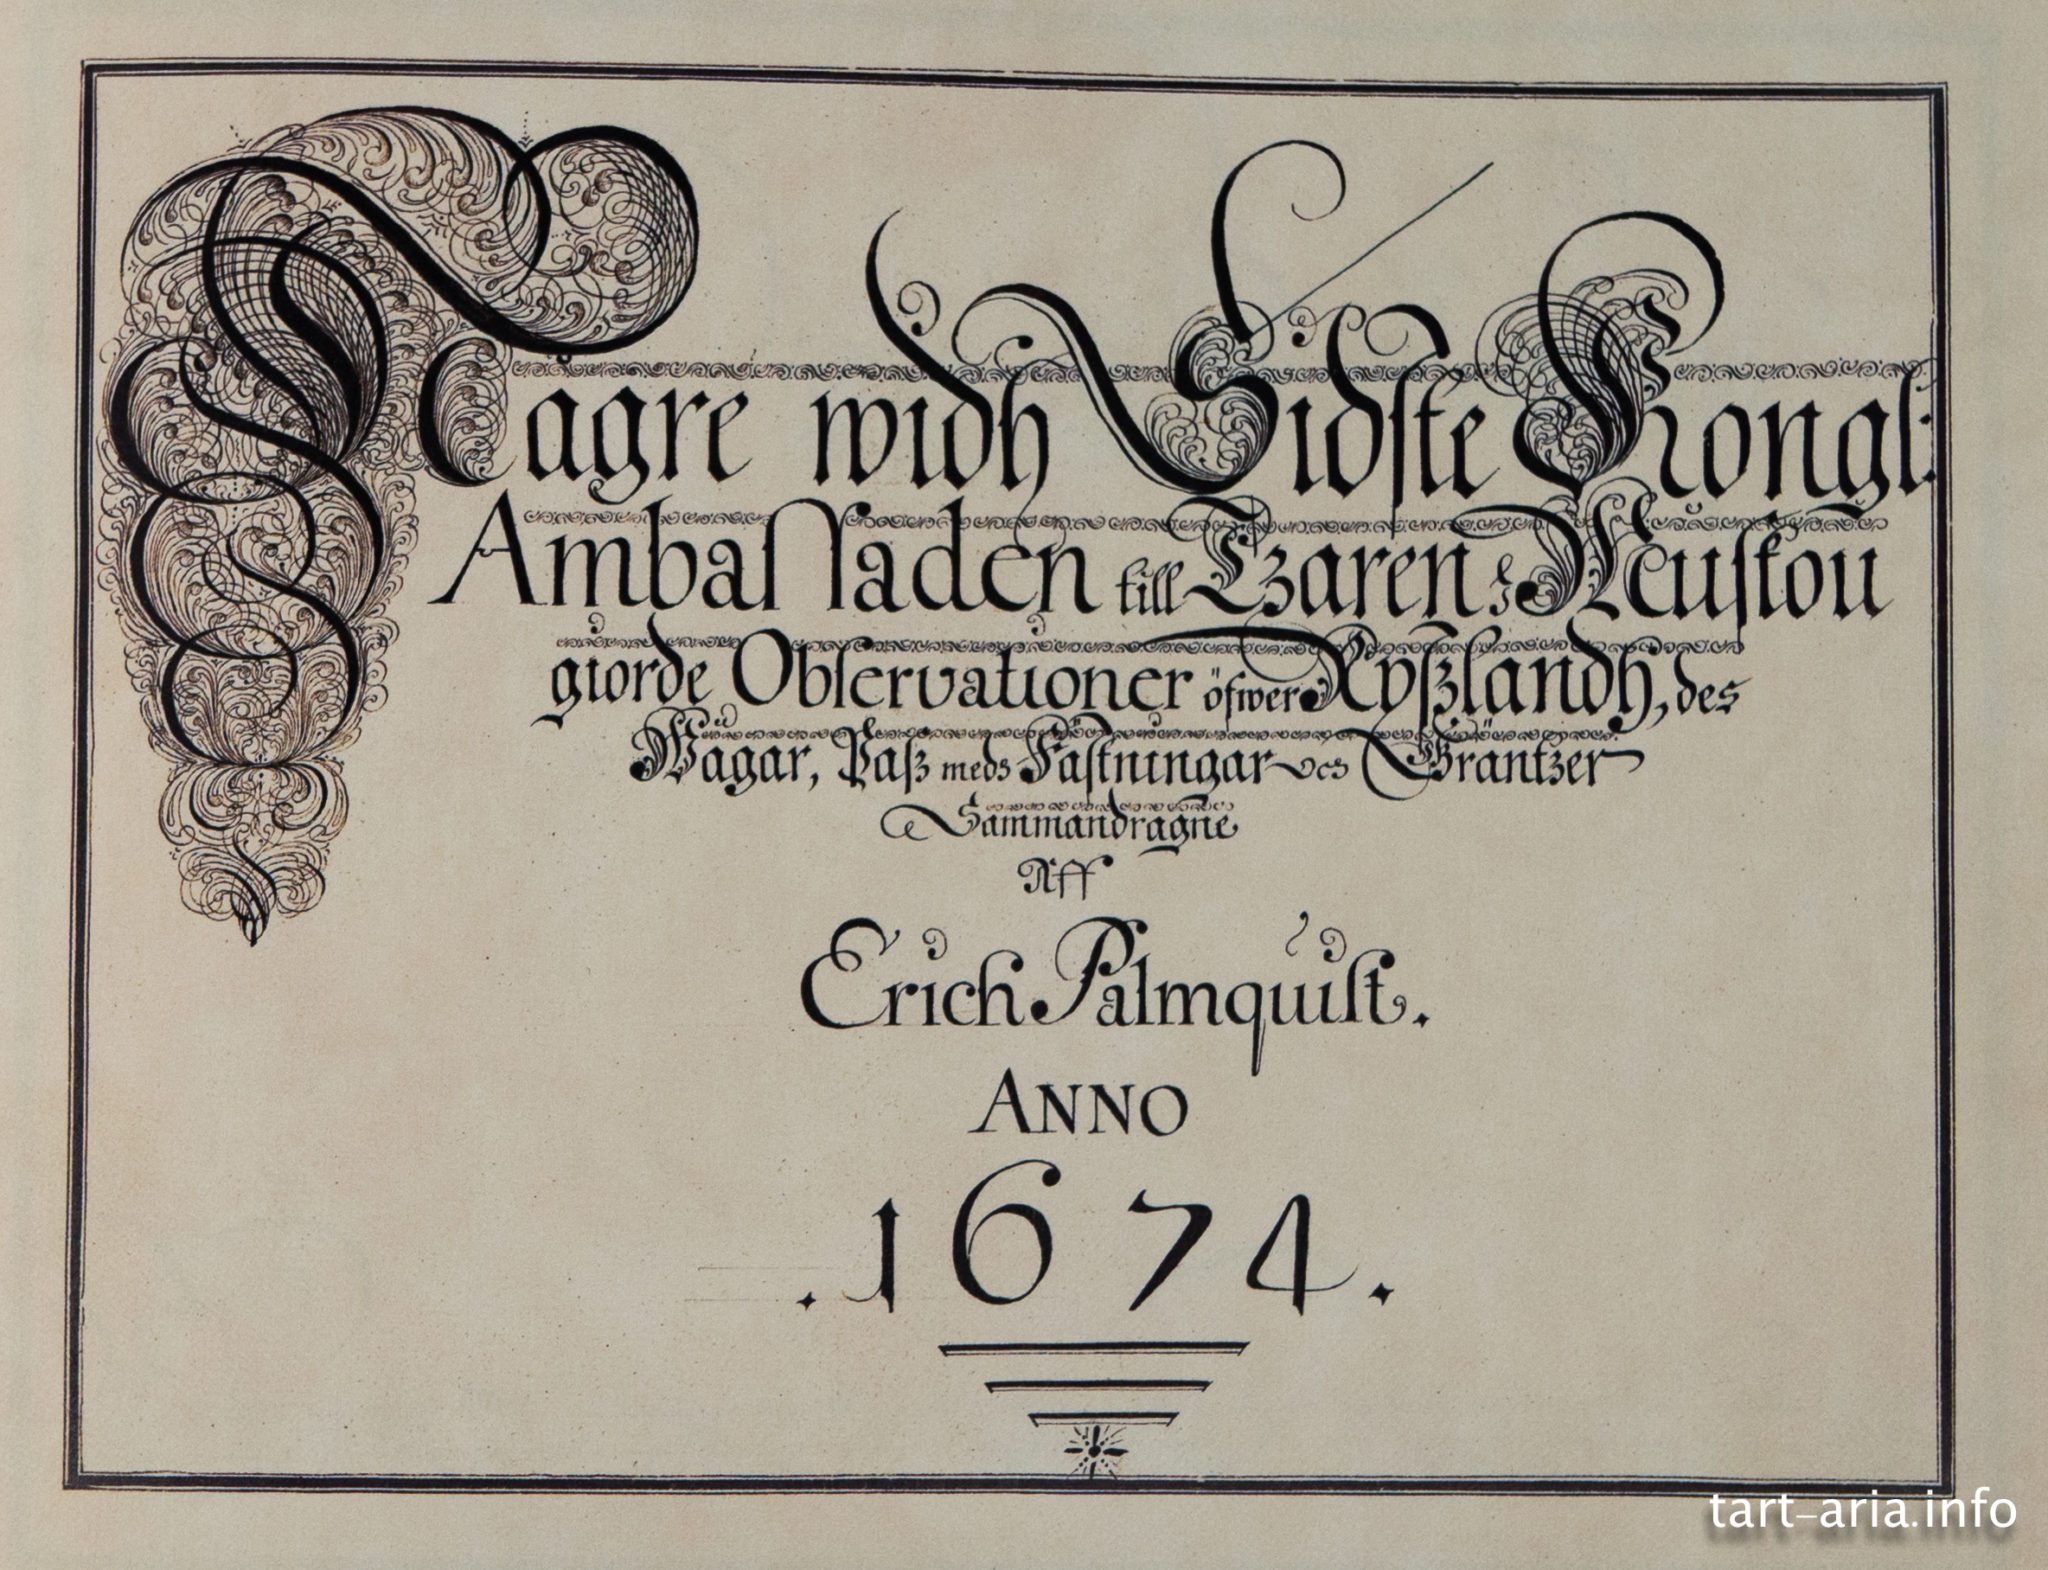 Någre widh Sidste Kongl:
Ambassaden till Tzaren i Muskou
giorde Observationer öfwer Ryszlandh, des
Wägar, Pasz meds Fästningar och Gräntzer
Sammandragne
Aff
Erich Palmquist.
ANNO
.1674.
tart-aria.info